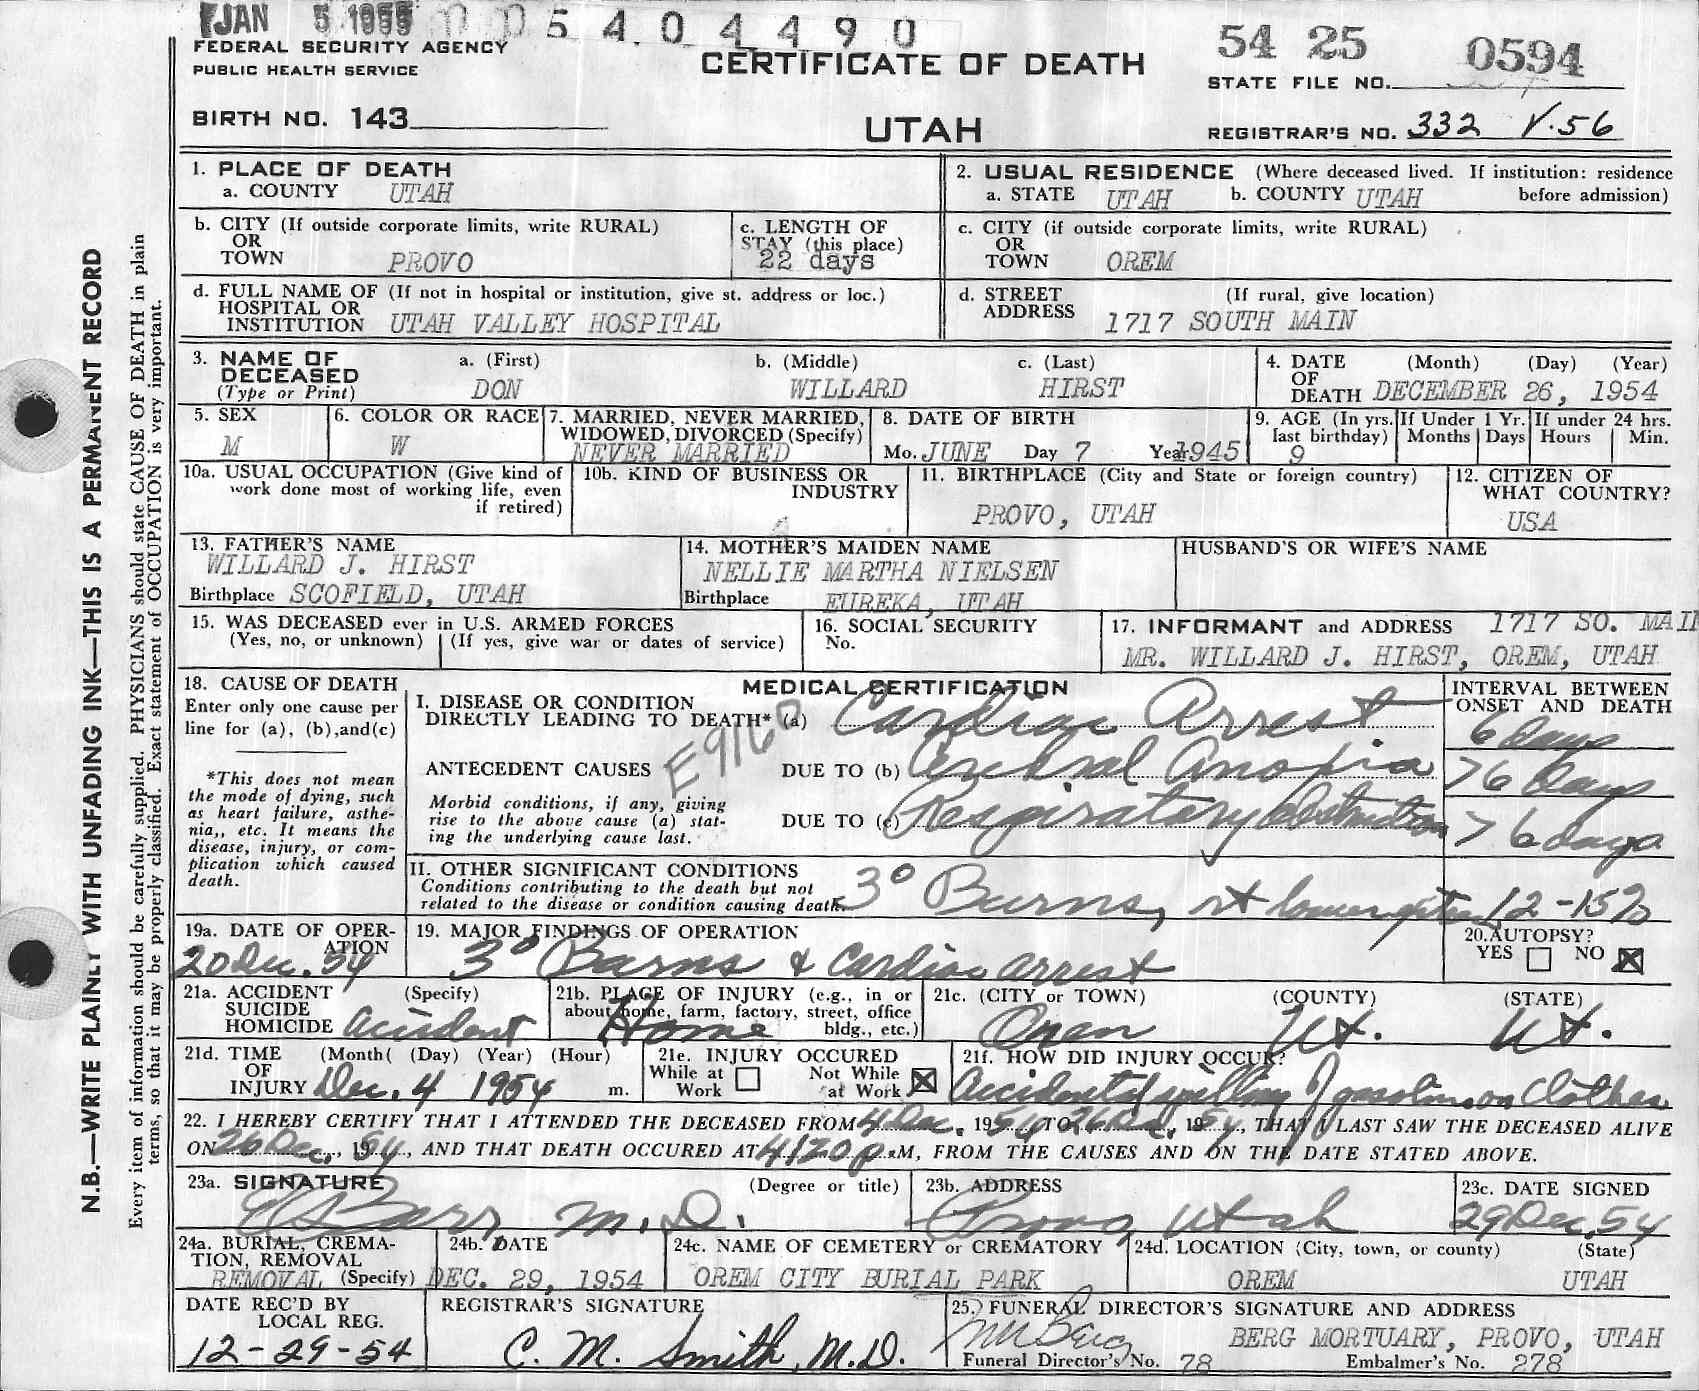 JAN 5 1955 5404490 54 25 0594
FEDERAL SECURITY AGENCY
PUBLIC HEALTH SERVICE
CERTIFICATE OF DEATH
STATE FILE NO.
BIRTH NO. 143
UTAH
REGISTRAR'S NO. 332 V.56
1. PLACE OF DEATH
a. COUNTY UTAH
2. USUAL RESIDENCE (Where deceased lived. If institution: residence before admission)
a. STATE UTAH b. COUNTY UTAH
b. CITY (If outside corporate limits, write RURAL)
OR
TOWN PROVO
c. LENGTH OF
STAY (this place)
22 days
c. CITY (if outside corporate limits, write RURAL)
OR
TOWN OREM
d. FULL NAME OF (If not in hospital or institution, give st. address or loc.)
HOSPITAL OR
INSTITUTION UTAH VALLEY HOSPITAL
d. STREET (If rural, give location)
ADDRESS 1717 SOUTH MAIN
3. NAME OF DECEASED
(Type or Print)
a. (First) b. (Middle) c. (Last)
DON WILLARD HIRST
4. DATE (Month) (Day) (Year)
OF
DEATH DECEMBER 26, 1954
5. SEX
M
6. COLOR OR RACE
W
7. MARRIED, NEVER MARRIED,
WIDOWED, DIVORCED (Specify)
NEVER MARRIED
8. DATE OF BIRTH
Mo. JUNE Day 7 Year 1945
9. AGE (In yrs. last birthday)
9
If Under 1 Yr.
Months Days
If under 24 hrs.
Hours Min.
10a. USUAL OCCUPATION (Give kind of
work done most of working life, even
if retired)
10b. KIND OF BUSINESS OR
INDUSTRY
11. BIRTHPLACE (City and State or foreign country)
PROVO, UTAH
12. CITIZEN OF
WHAT COUNTRY?
USA
13. FATHER'S NAME
WILLARD J. HIRST
Birthplace SCOFIELD, UTAH
14. MOTHER'S MAIDEN NAME
NELLIE MARTHA NIELSEN
Birthplace EUREKA, UTAH
HUSBAND'S OR WIFE'S NAME
15. WAS DECEASED ever in U.S. ARMED FORCES
(Yes, no, or unknown) (If yes, give war or dates of service)
16. SOCIAL SECURITY
No.
17. INFORMANT and ADDRESS 1717 SO. MAIN
MR. WILLARD J. HIRST, OREM, UTAH
18. CAUSE OF DEATH
Enter only one cause per
line for (a), (b),and(c)
*This does not mean
the mode of dying, such
as heart failure, asthe-
nia,, etc. It means the
disease, injury, or com-
plication which caused
death.
MEDICAL CERTIFICATION
I. DISEASE OR CONDITION
DIRECTLY LEADING TO DEATH* (a) Cardiac Arrest
E916
ANTECEDENT CAUSES DUE TO (b) Cerebral Anoxia
Morbid conditions, if any, giving
rise to the above cause (a) stat-
ing the underlying cause last.
DUE TO (c) Respiratory Obstruction
INTERVAL BETWEEN
ONSET AND DEATH
6 Days
>6 Days
>6 days
II. OTHER SIGNIFICANT CONDITIONS
Conditions contributing to the death but not
related to the disease or condition causing death.
3° Burns, rt lower 12-15%
19a. DATE OF OPER-
ATION
20 Dec. 54
19. MAJOR FINDINGS OF OPERATION
3° Burns & Cardiac arrest
20. AUTOPSY?
YES NO
21a. ACCIDENT (Specify)
SUICIDE
HOMICIDE accident
21b. PLACE OF INJURY (e.g., in or
about home, farm, factory, street, office
bldg., etc.)
Home
21c. (CITY or TOWN) (COUNTY) (STATE)
Orem Ut. Ut.
21d. TIME (Month( (Day) (Year) (Hour)
OF
INJURY Dec. 4 1954 m.
21e. INJURY OCCURED
While at Work
Not While at Work
21f. HOW DID INJURY OCCUR?
Accidental spilling of gasoline on clothes
22. I HEREBY CERTIFY THAT I ATTENDED THE DECEASED FROM 4 Dec. 1954 TO 26 Dec., 1954, THAT I LAST SAW THE DECEASED ALIVE
ON 26 Dec., 1954, AND THAT DEATH OCCURED AT 4:20 p.M, FROM THE CAUSES AND ON THE DATE STATED ABOVE.
23a. SIGNATURE (Degree or title)
M.D.
23b. ADDRESS
Provo, Utah
23c. DATE SIGNED
29 Dec. 54
24a. BURIAL, CREMA-
TION, REMOVAL
REMOVAL (Specify)
24b. DATE
DEC. 29, 1954
24c. NAME OF CEMETERY or CREMATORY
OREM CITY BURIAL PARK
24d. LOCATION (City, town, or county) (State)
OREM UTAH
DATE REC'D BY
LOCAL REG.
12-29-54
REGISTRAR'S SIGNATURE
C. M. Smith, M.D.
25. FUNERAL DIRECTOR'S SIGNATURE AND ADDRESS
BERG MORTUARY, PROVO, UTAH
Funeral Director's No. 78 Embalmer's No. 278
N.B.—WRITE PLAINLY WITH UNFADING INK—THIS IS A PERMANENT RECORD
Every item of information should be carefully supplied. PHYSICIANS should state CAUSE OF DEATH in plain
terms, so that it may be properly classified. Exact statement of OCCUPATION is very important.